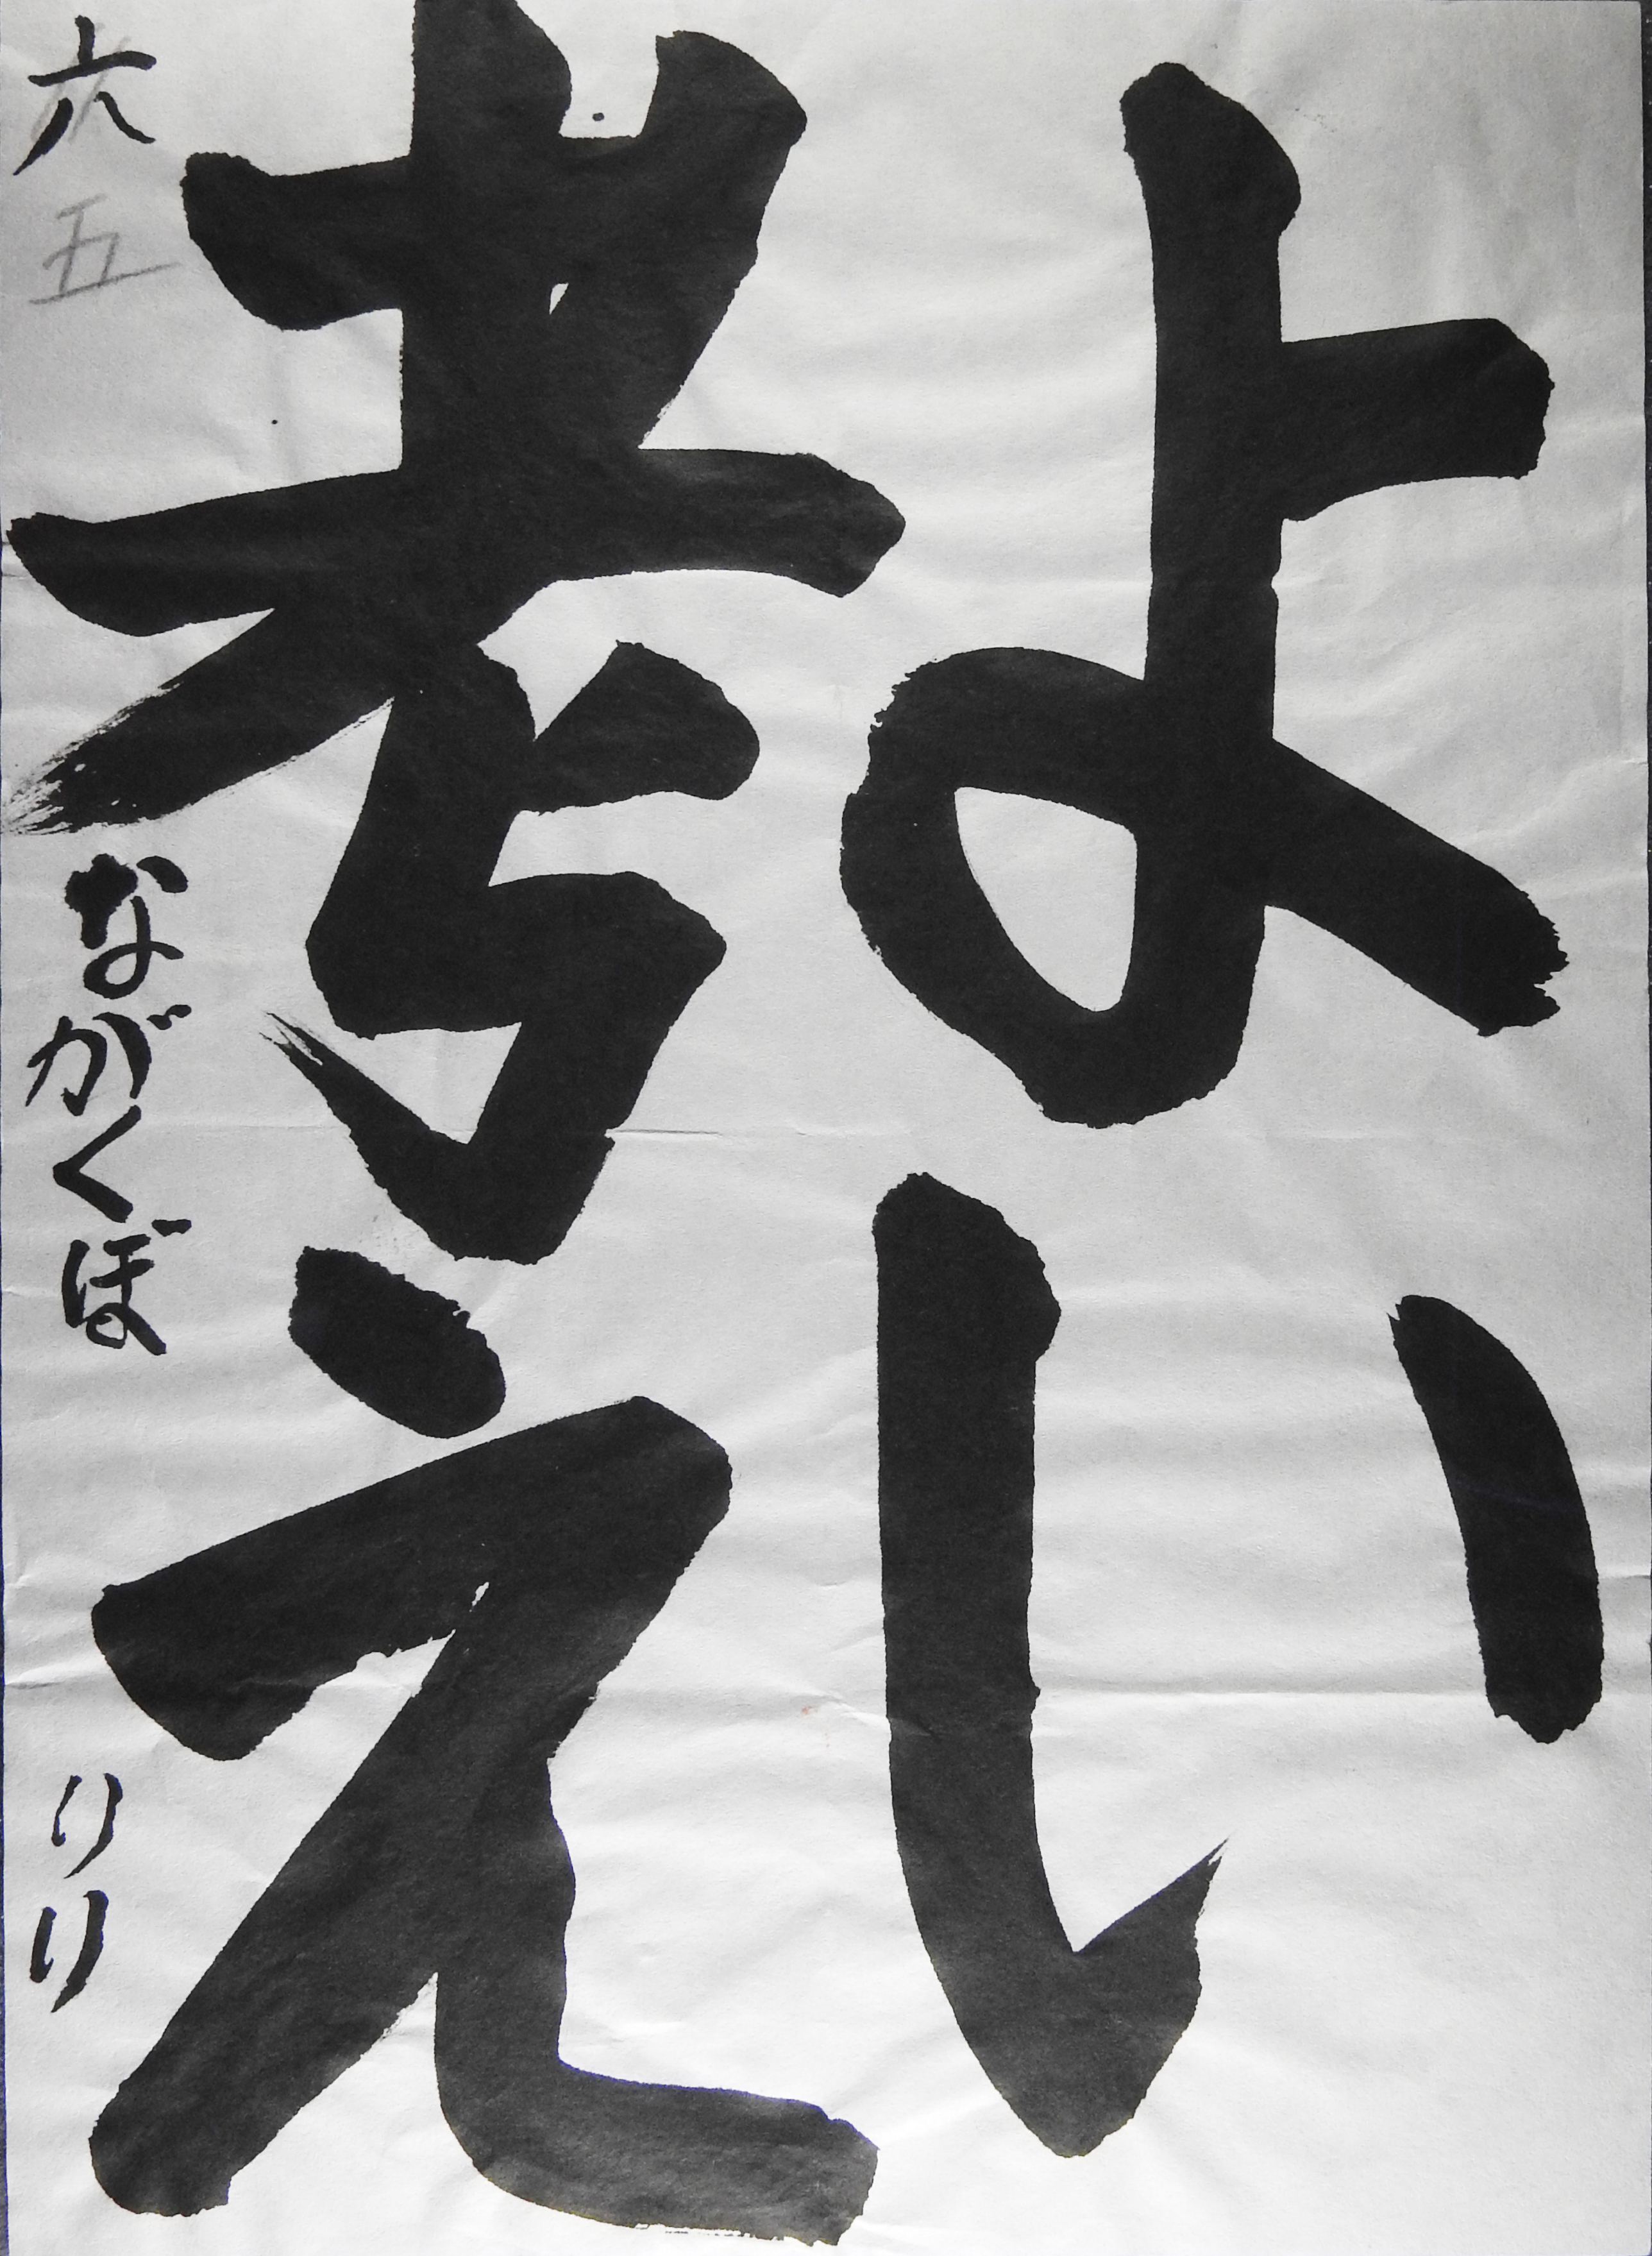 よい
考え
六 五 ながくぼ りり